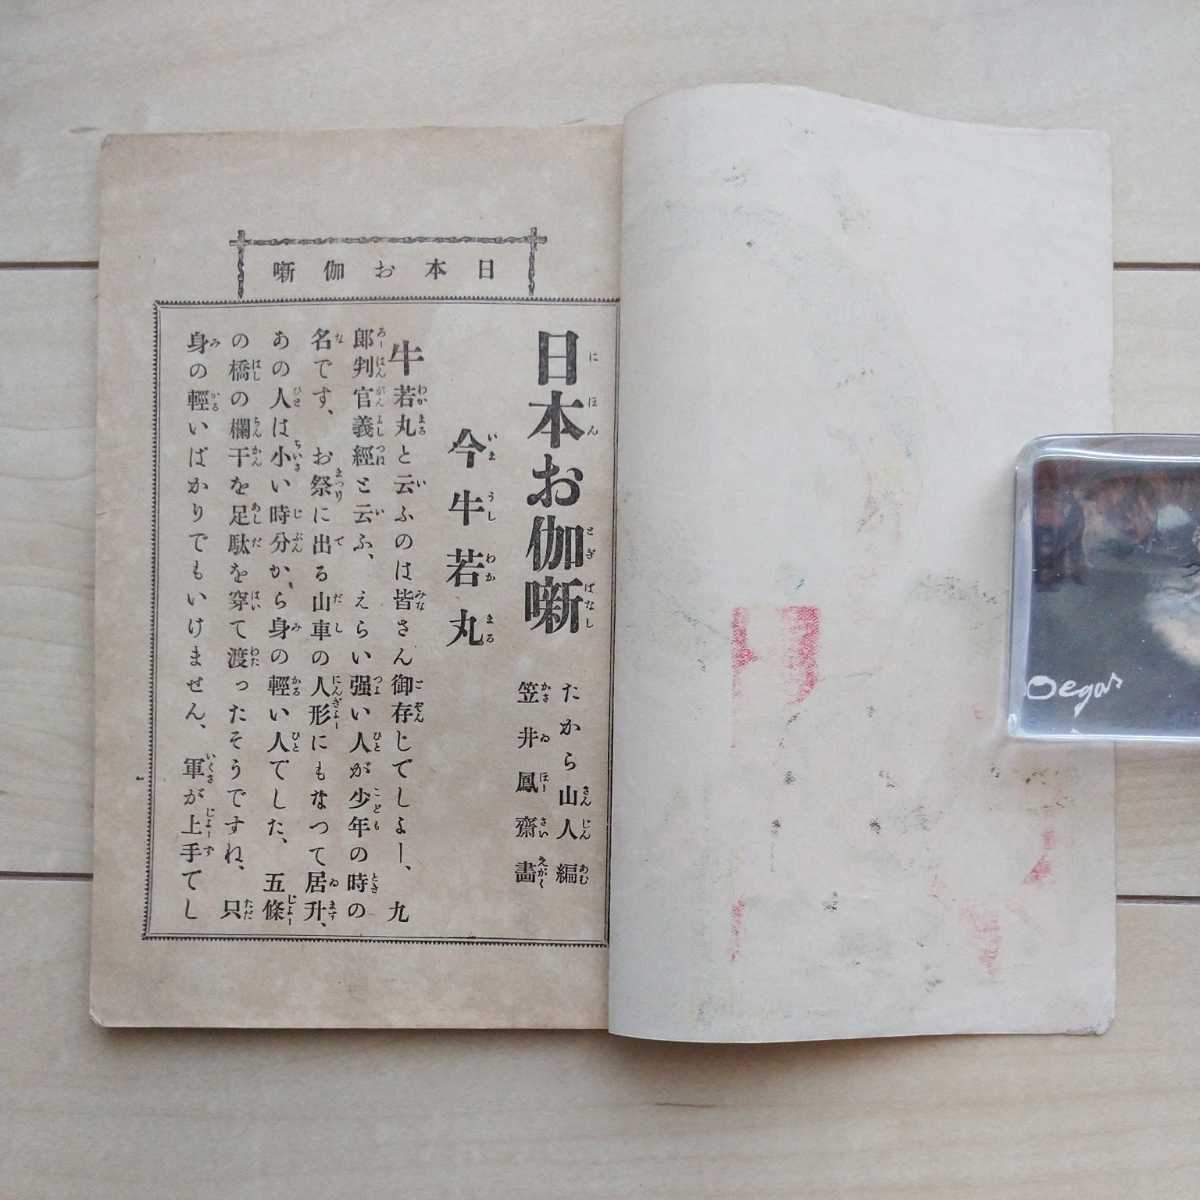 日本お伽噺
日本お伽噺
たから山人編
笠井鳳齋畵
今牛若丸
牛若丸と云ふのは皆さん御存じでしよー、九
郎判官義經と云ふ、えらい强い人が少年の時の
名です、お祭に出る山車の人形にもなつて居升、
あの人は小い時分か、ら身の輕い人でした、五條
の橋の欄干を足駄を穿て渡ったそうですね、只
身の輕いばかりでもいけません、軍が上手でし
Degas